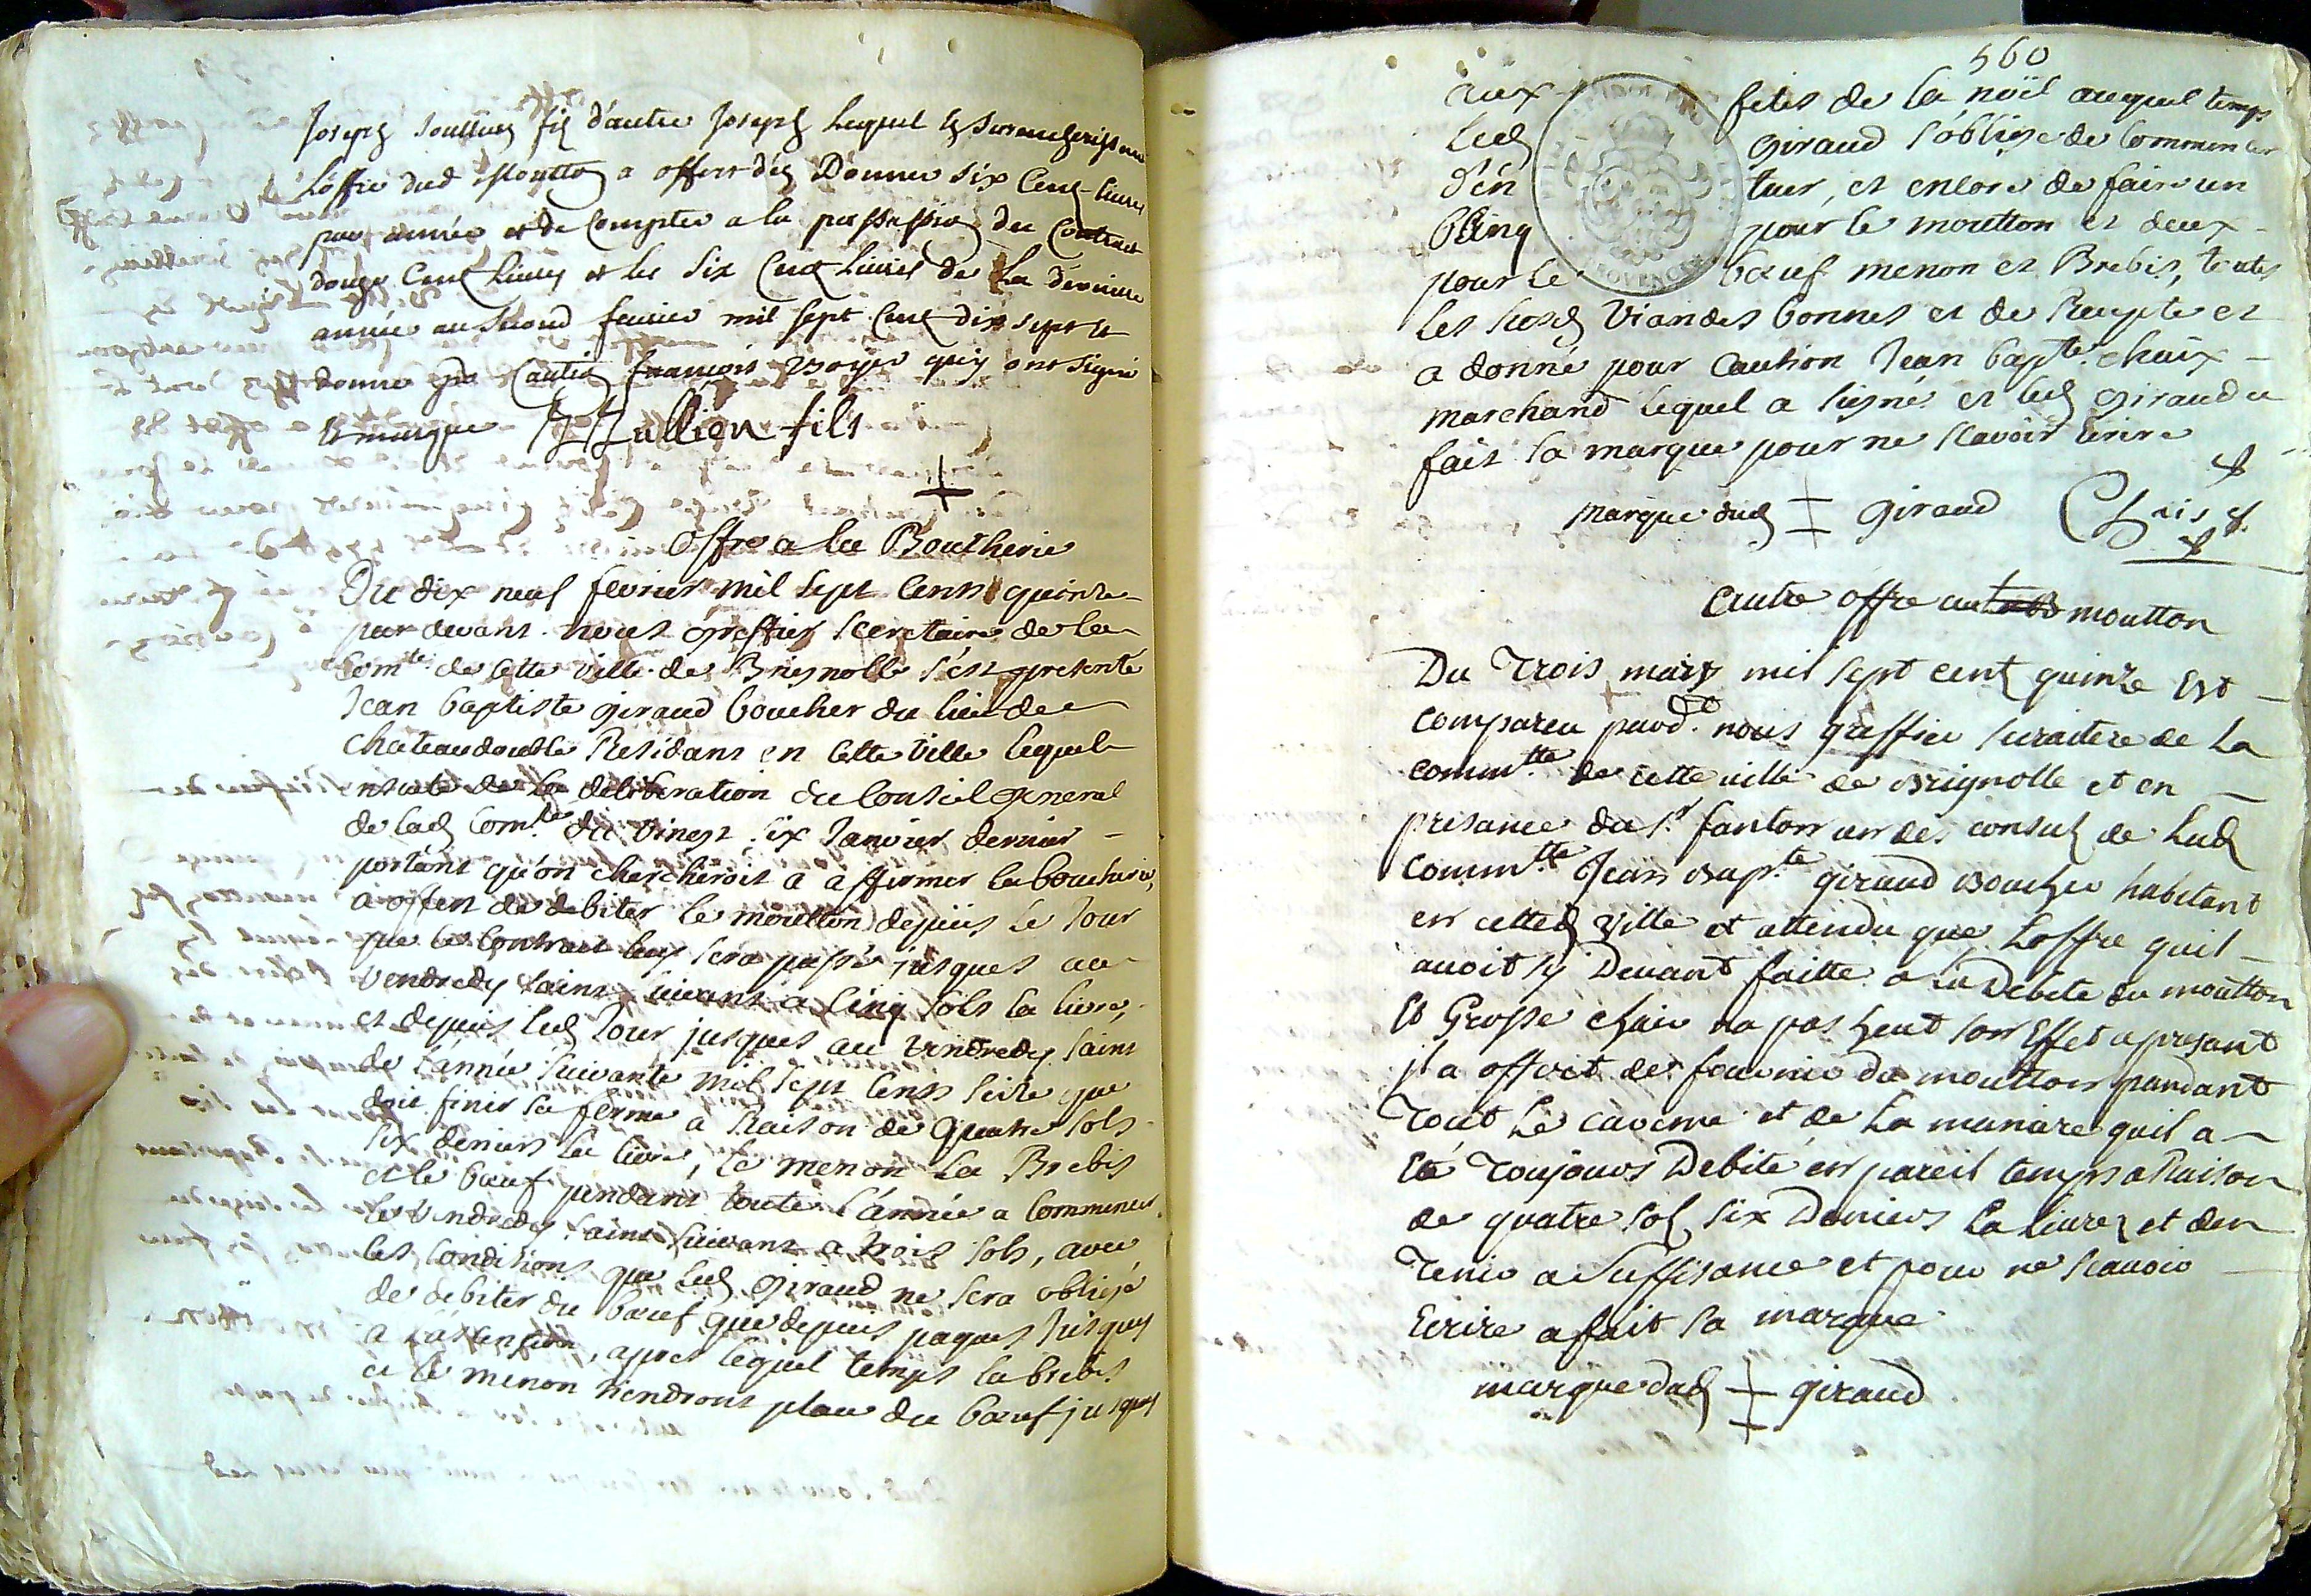 Joseph fils d'autre Joseph Lequel Encherissant
L'offre dud Moutton a offert d'en Donner six Cent livres
par année et de Compter a la passassion du Contract
douze Cent livres et les six Cent livres de La derniere
année au second feurier mil sept Cent dix sept et
donne pr Caution françois Boyer quy ont signé
et marque Jullien fils
Offre a la Boucherie
Du dix neuf fevrier mil sept Cents quinze
par devant nous greffier secretaire de la
Comte de Cette ville de Brignolle s'est presenté
Jean baptiste giraud boucher du lieu de
chateaudouble Residant en Cette Ville lequel
ensuite de la deliberation du Conseil general
de lad Comte du vingt six Janvier dernier
portant qu'on chercheroit a affermer la boucherie,
a offert de debiter le moutton depuis le Jour
que le Contract luy sera passé jusques au
vendredy saint suivant a Cinq sols la livre,
et depuis led Jour jusques au vendredy saint
de l'année suivante mil sept Cents seize que
doit finir sa ferme a Raison de quatre sols
six deniers la livre, le menon la Brebis
et le bœuf pendant toute l'année a Commencer
le vendredy saint suivant a trois sols, avec
les Conditions que led Giraud ne sera obligé
de debiter du bœuf que depuis paques Jusques
a l'assension, apres lequel temps la brebis
et le menon tiendront place du bœuf jusques
560
aux fetes de la noël auquel temps
led giraud s'oblige de Commencer
d'en tuer, et encore de faire un
Cinq pour le moutton et deux
pour le bœuf menon et Brebis, toutes
les susd Viandes bonnes et de Recepte et
a donné pour Caution Jean bapte chaix
marchand lequel a signé et led giraud a
fait sa marque pour ne scavoir ecrire
marque dud giraud Chaix
autre offre au moutton
Du Trois mars mil sept cent quinze Est
compareu pardt nous greffier secraitere de La
commtte de cette ville de Brignolle et en
presance du sr fanton un des consuls de Lad
commtte Jean Bapte giraud Boucher habitant
en cetted Ville et attendu que Loffre quil
auoit sy Deuant faitte a La Debite du moutton
Et Grosse chair na pas heut son Effet a presant
jl a offert de fournir du moutton pandant
Tout Le careme et de La maniere quil a
Eté Toujours Debité en pareil temps a Raison
de quatre sols six Deniers La Liure et den
Tenir a Suffisance et pour ne scauoir
Ecrire a fait sa marque
marque dud giraud